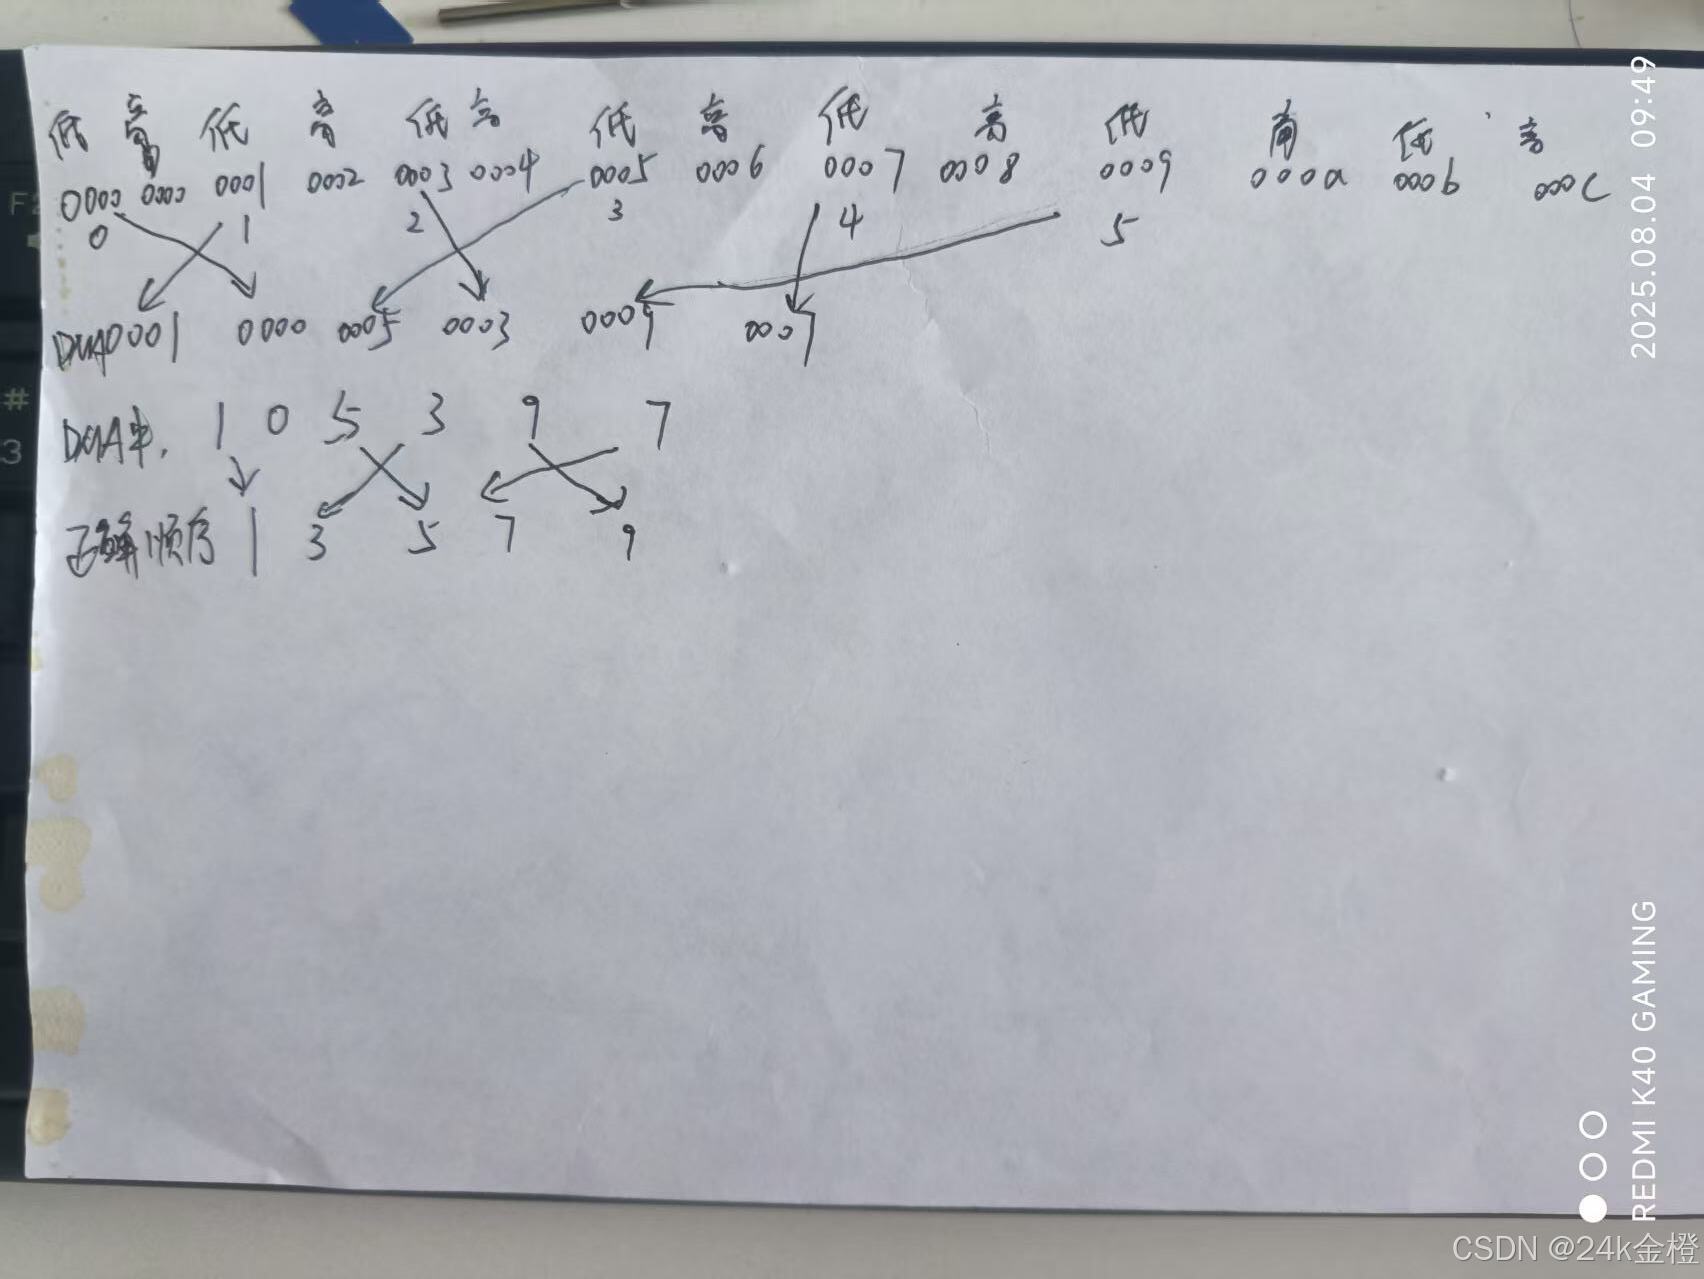 低 高 低 高 低 高 低 高 低 高 低 高 低 高
0000 0000 0001 0002 0003 0004 0005 0006 0007 0008 0009 000a 000b 000c
0 1 2 3 4 5
DMA0001 0000 0005 0003 0009 0007
DMA中, 1 0 5 3 9 7
正确顺序 1 3 5 7 9
2025.08.04 09:49
REDMI K40 GAMING
CSDN @24k金橙
F2
#
3